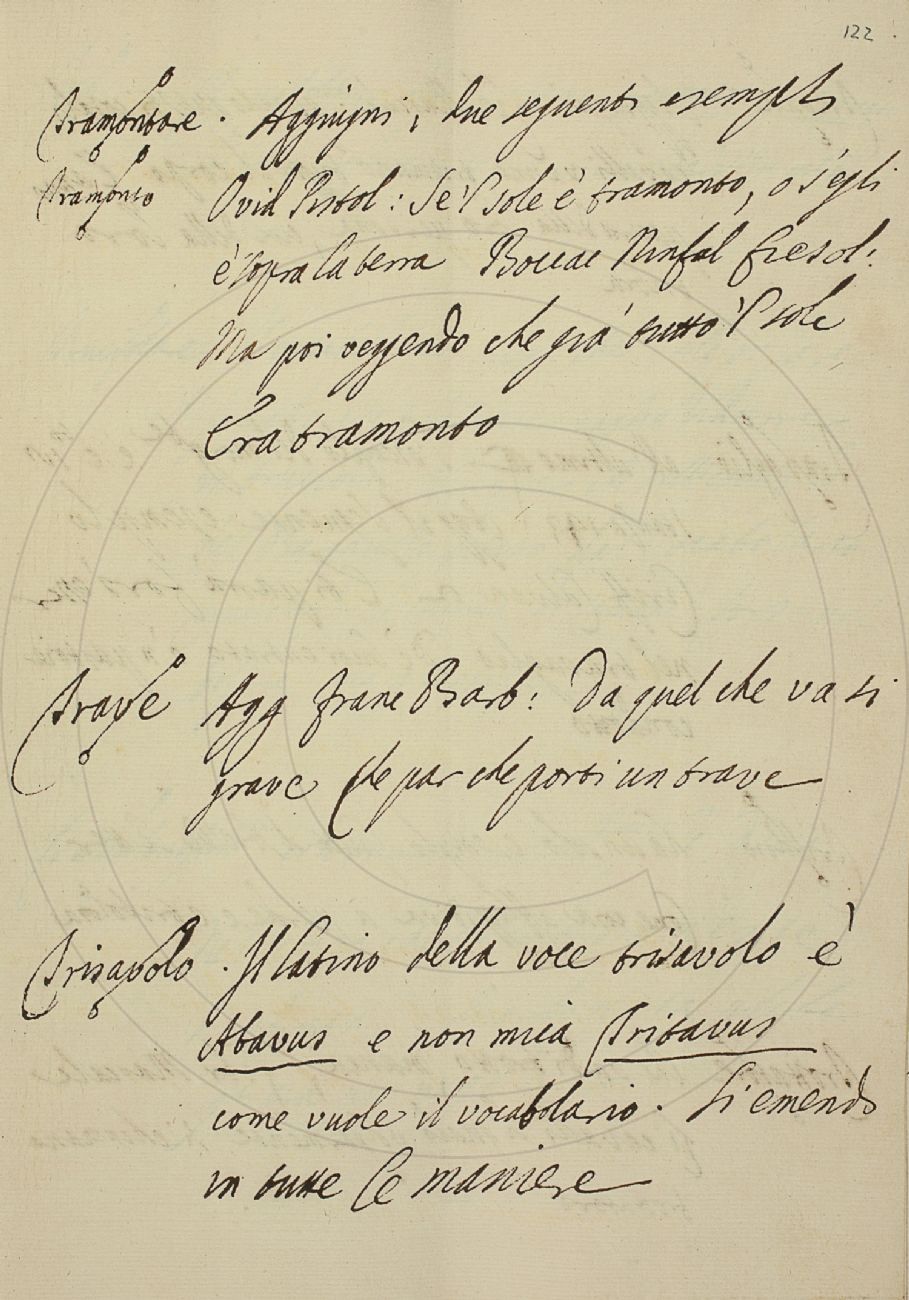 122
Tramontare . Aggiugni i due seguenti esempli
Tramonto Ovid Pistol: Se'l sole è tramonto, o s'egli
è sopra la terra Boccac Ninfal Fiesol:
Ma poi veggendo che già tutto 'l sole
Era tramonto
Trave Agg Franc Barb: Da quel che va si
grave Che par che porti un trave
Trisavolo . Il latino della voce trisavolo è
Abavus e non mica Tritavus
come vuole il vocabolario . Si emendi
in tutte le maniere